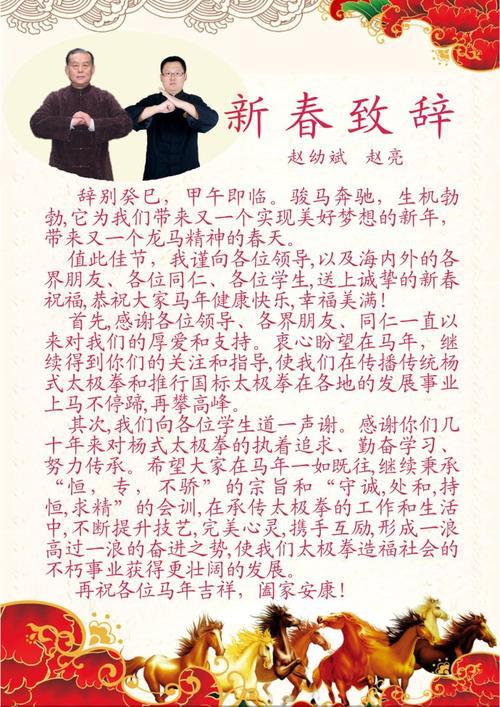 新春致辞
赵幼斌 赵亮
辞别癸巳，甲午即临。骏马奔驰，生机勃
勃,它为我们带来又一个实现美好梦想的新年，
带来又一个龙马精神的春天。
值此佳节，我谨向各位领导,以及海内外的各
界朋友、各位同仁、各位学生,送上诚挚的新春
祝福,恭祝大家马年健康快乐,幸福美满！
首先,感谢各位领导、各界朋友、同仁一直以
来对我们的厚爱和支持。衷心盼望在马年，继
续得到你们的关注和指导,使我们在传播传统杨
式太极拳和推行国标太极拳在各地的发展事业
上马不停蹄,再攀高峰。
其次,我们向各位学生道一声谢。感谢你们几
十年来对杨式太极拳的执着追求、勤奋学习、
努力传承。希望大家在马年一如既往,继续秉承
“恒，专，不骄”的宗旨和“守诚,处和,持
恒,求精”的会训,在承传太极拳的工作和生活
中,不断提升技艺,完美心灵,携手互励,形成一浪
高过一浪的奋进之势,使我们太极拳造福社会的
不朽事业获得更壮阔的发展。
再祝各位马年吉祥，阖家安康！